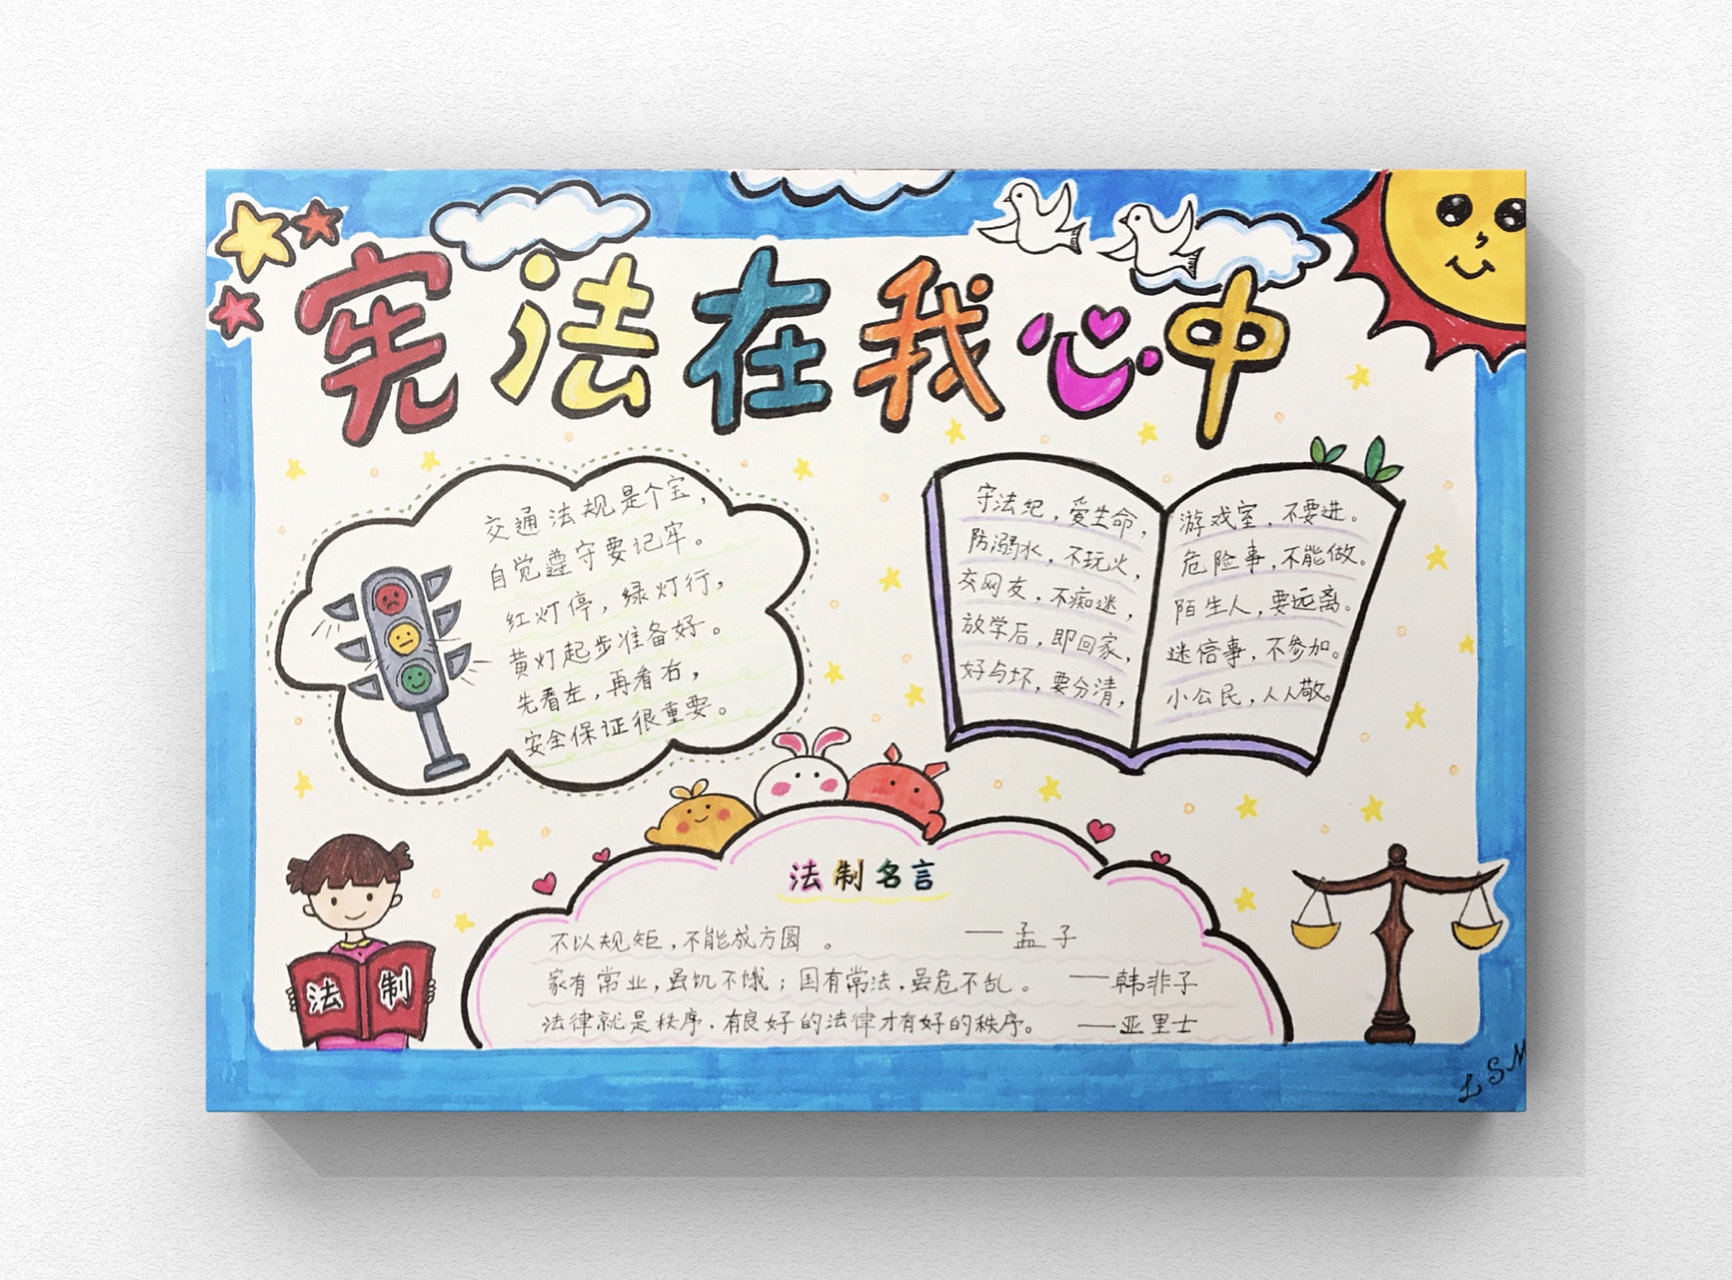 宪法在我心中
交通法规是个宝，
自觉遵守要记牢。
红灯停，绿灯行，
黄灯起步准备好。
先看左，再看右，
安全保证很重要。
守法纪，爱生命，
防溺水，不玩火，
交网友，不痴迷，
放学后，即回家，
好与坏，要分清，
游戏室，不要进。
危险事，不能做。
陌生人，要远离。
迷信事，不参加。
小公民，人人敬。
法制名言
不以规矩，不能成方圆。 ——孟子
家有常业，虽饥不饿；国有常法，虽危不乱。 ——韩非子
法律就是秩序，有良好的法律才有好的秩序。 ——亚里士
法制
LSM